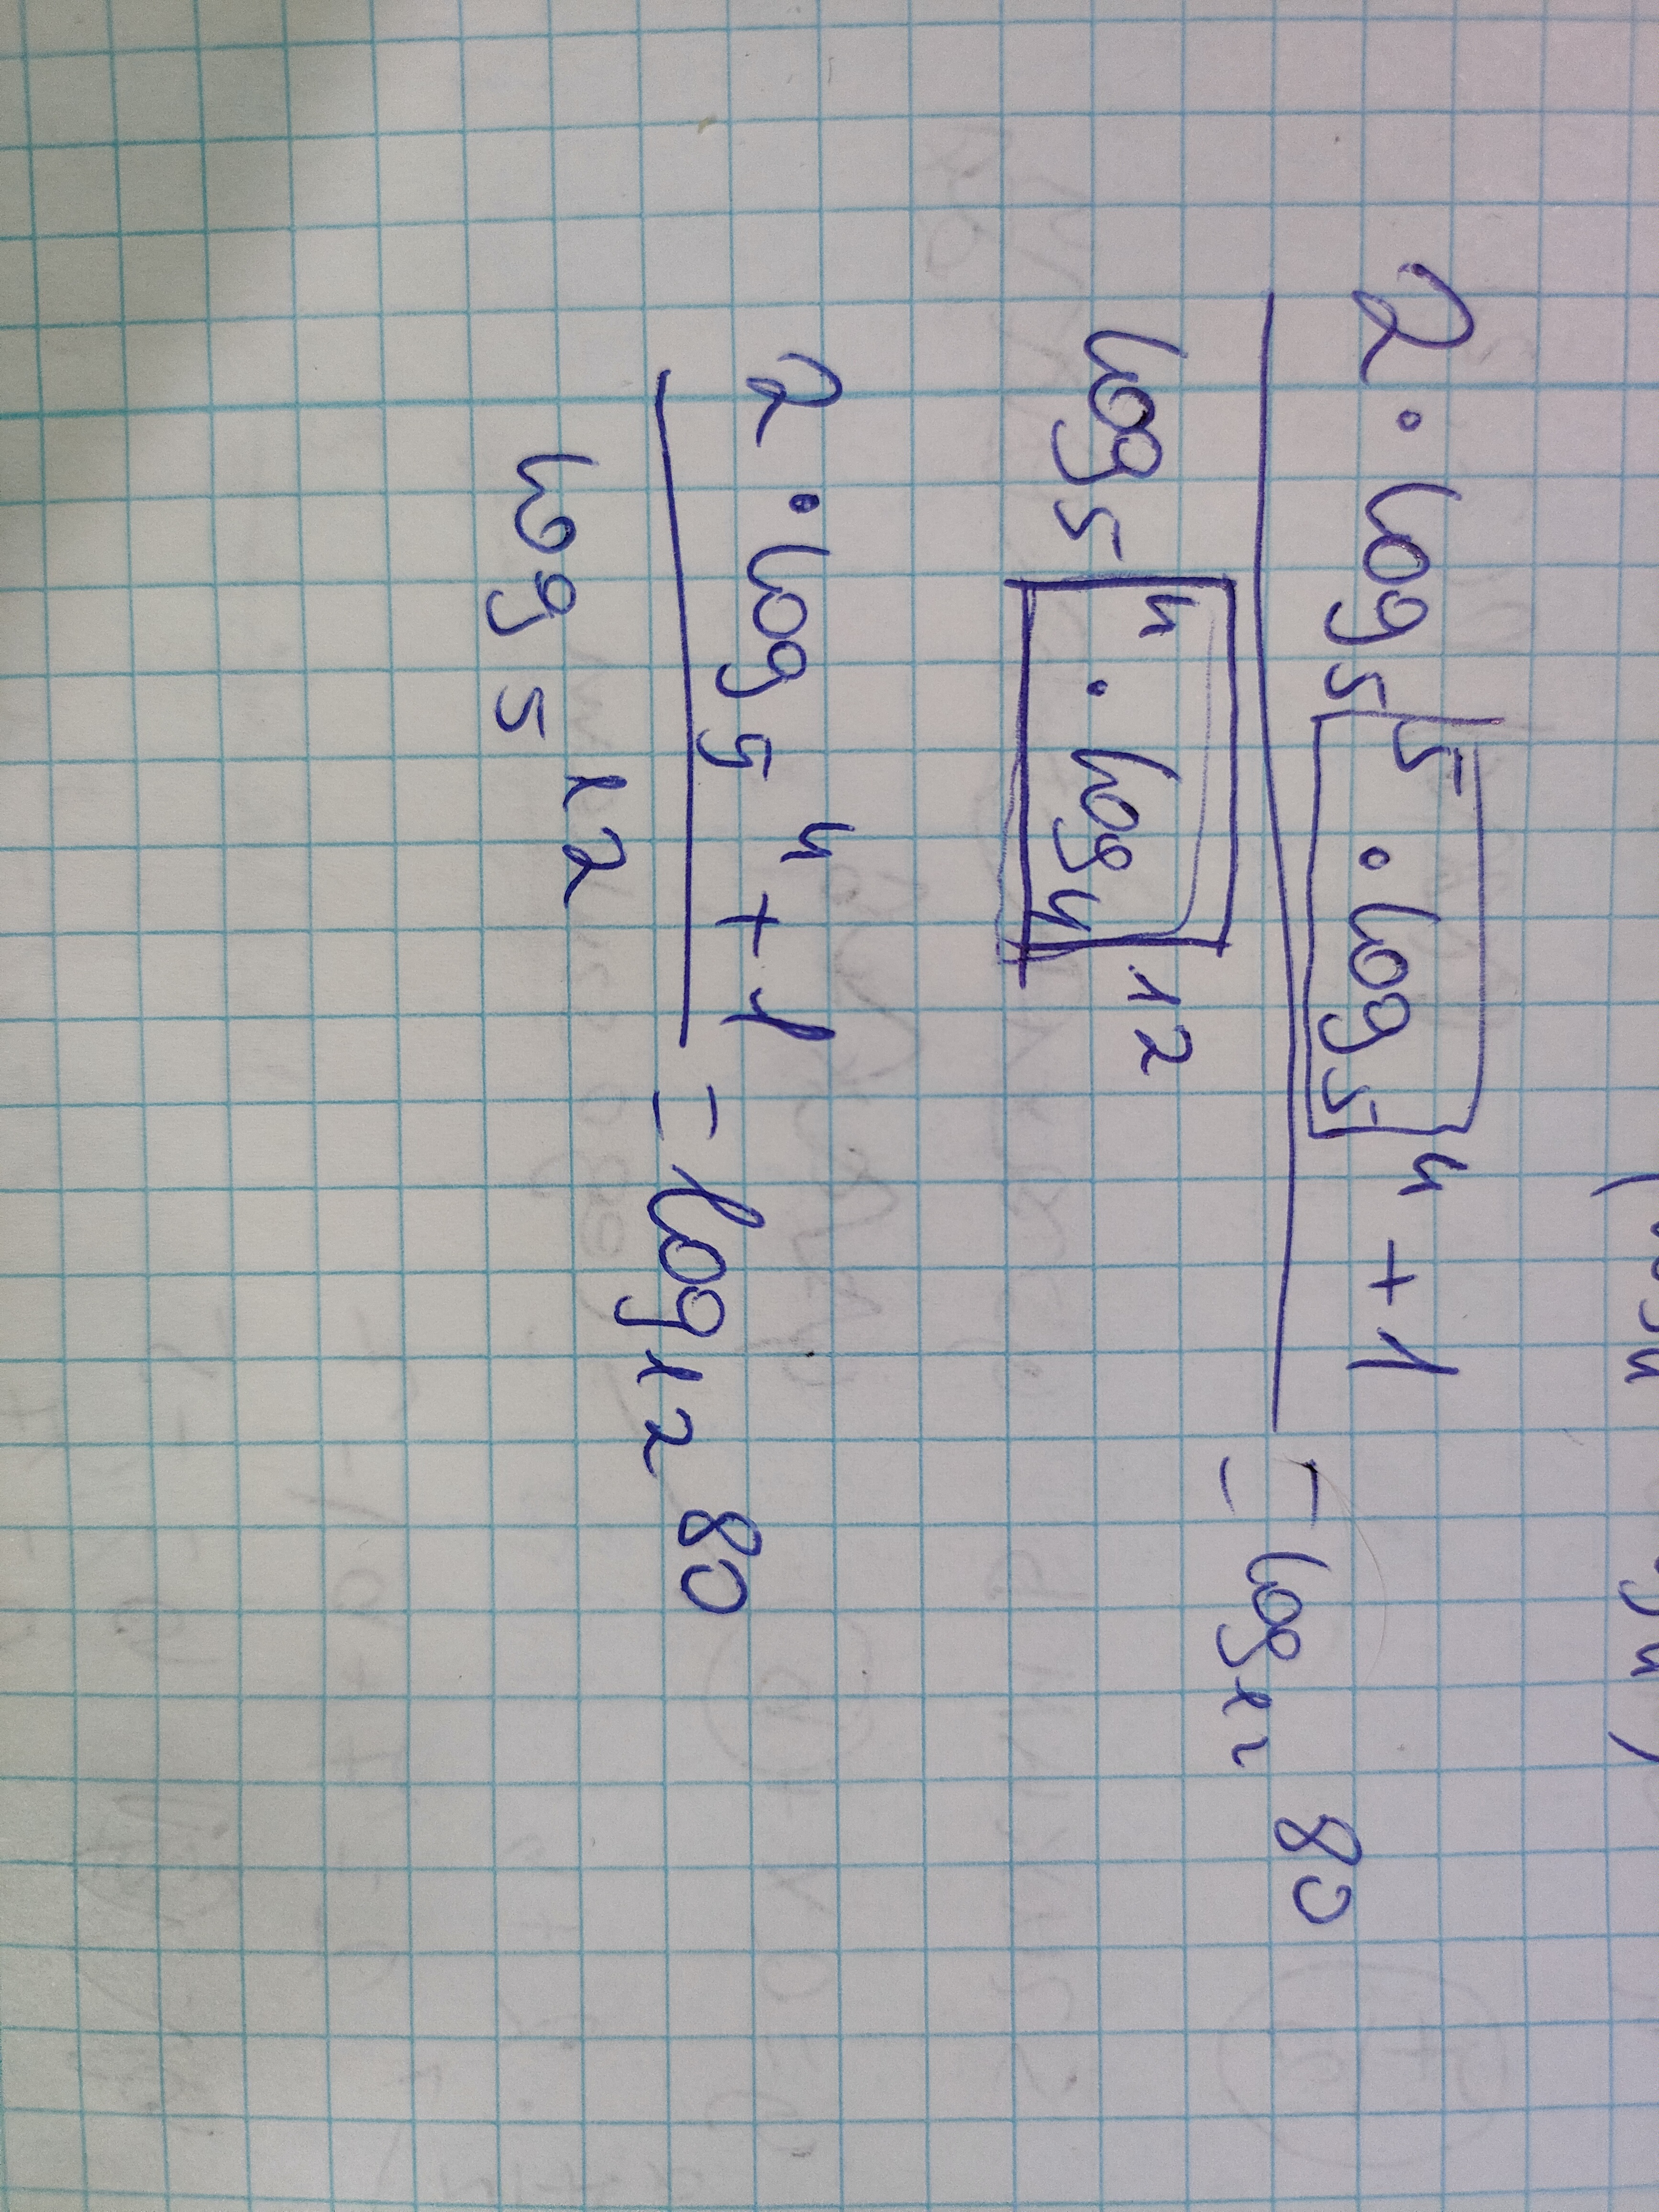 2 · log₅ 5 · log₅ 4 + 1
log₅ 4 · log₄ 12
= log₁₂ 80
2 · log₅ 4 + 1
log₅ 12
= log₁₂ 80